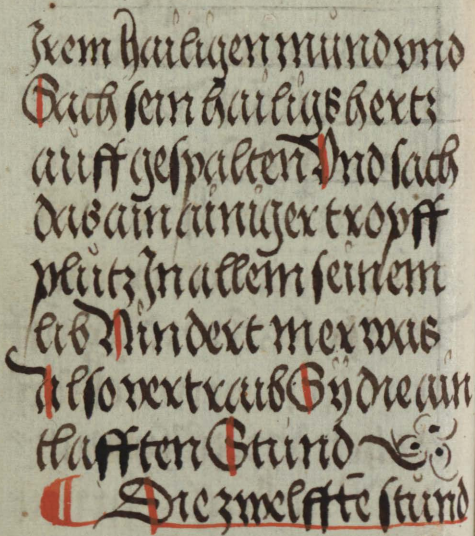 Irem hailigen mund vnd
Sach sein hailigs hertz
auff gespalten Vnd sach
das ain ainiger tropff
plutz In allem seinem
lib Nindert mer was
Also vertraib Sy die ain
tlafften Stund
¶ Die zwelffte stund